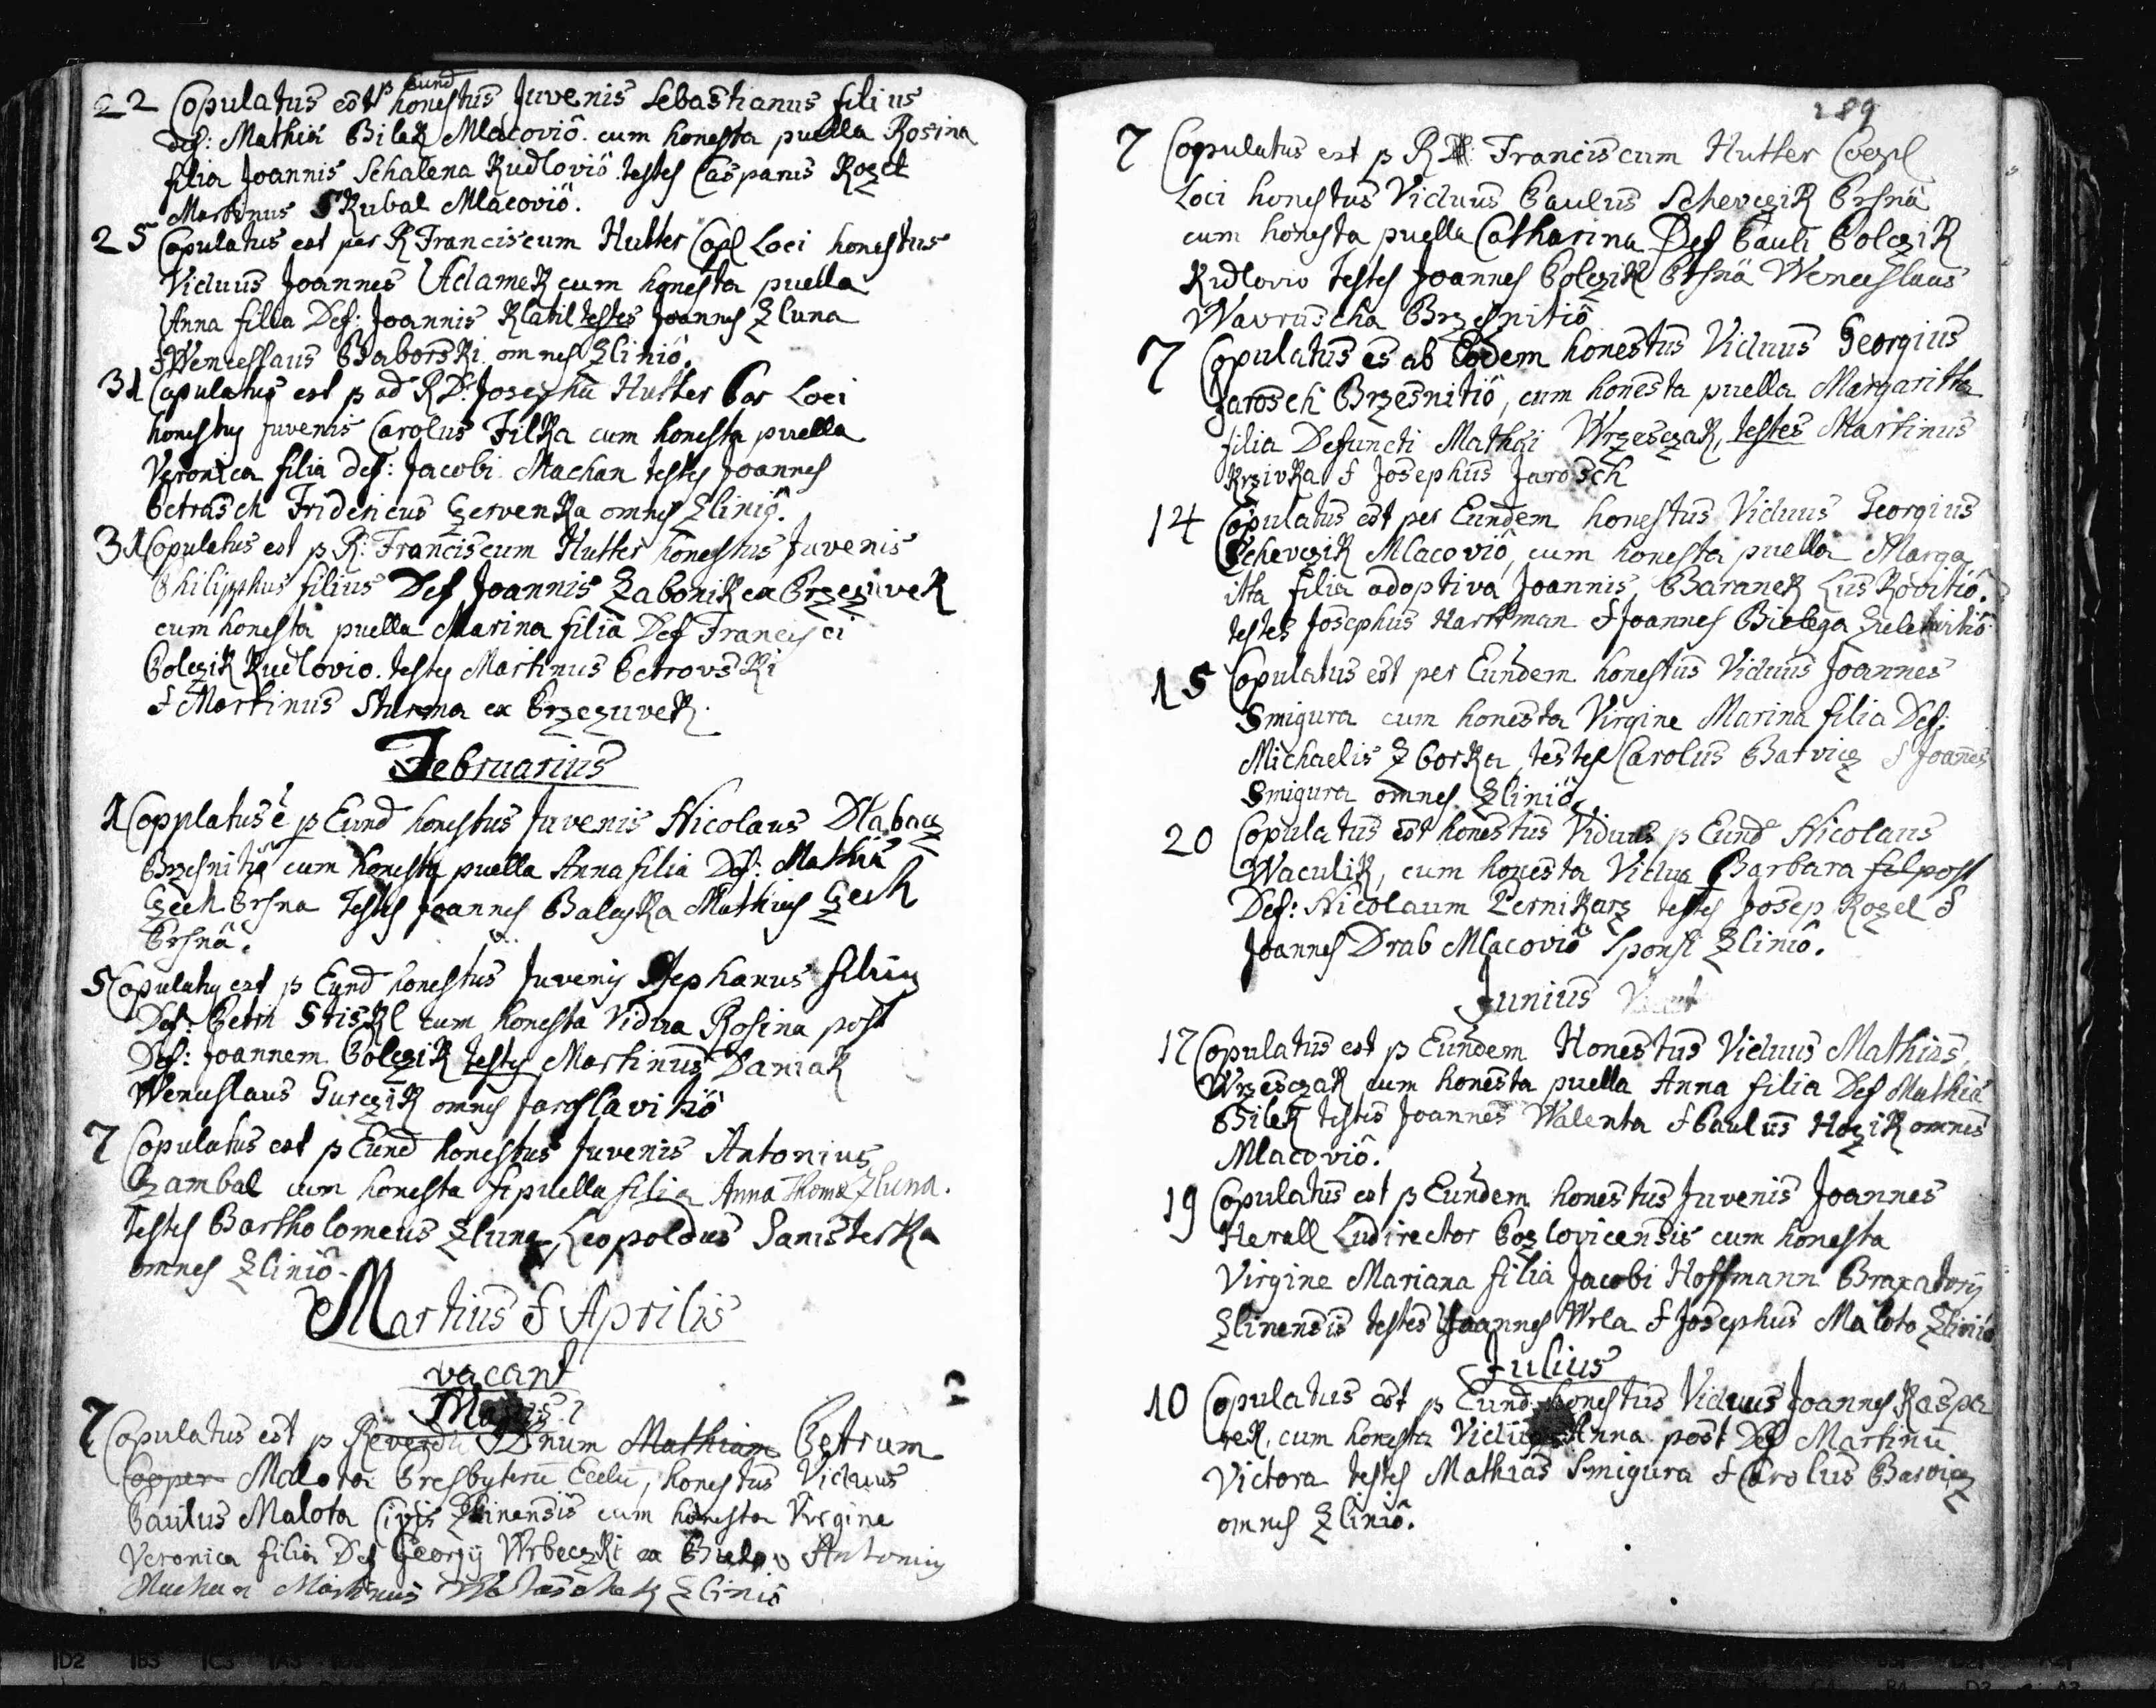 22 Copulatus est p Eund honestus Juvenis Sebastianus filius
def: Mathiæ Bilek Mlacoviô. cum honesta puella Rosina
filia Joannis Schalena Kudloviô. testes Casparus Kozel
Martinus Skubal Mlacoviô.
25 Copulatus est per R Franciscum Hutter Copl Loci honestus
Viduus Joannes Adamek cum honesta puella
Anna filia Def: Joannis Klatil testes Joannes Zluna
& Wenceslaus Baborski omnes Zliniô.
31 Copulatus est p ad R D: Josephū Hutter Par Loci
honestus Juvenis Carolus Filka cum honesta puella
Veronica filia def: Jacobi Machan testes Joannes
Petrasch Fridericus Czervenka omnes Zliniô.
31 Copulatus est p R: Franciscum Hutter honestus Juvenis
Philipphus filius Def Joannis Zabonik ex Przezuvek
cum honesta puella Marina filia Def Francisci
Polczik Kudlovio. testes Martinus Petrovski
& Martinus Sturma ex Przezuvek.
Februarius
1 Copplatus ē p Eund honestus Juvenis Nicolaus Dlabacz
Brzesnitiô cum honesta puella Anna filia Def: Mathiæ
Czech Prsna testes Joannes Baleyka Mathias Czech
Prsnâ.
5 Copulatus est p Eund honestus Juvenis Stephanus filius
Def: Petri Stiskl cum honesta Vidua Rosina post
Def: Joannem Polczik testes Martinus Daniak
Wenceslaus Gurczik omnes Jaroslavitiô
7 Copulatus est p Eund honestus Juvenis Antonius
Czambal cum honesta puella filia Anna Thomæ Zluna.
testes Bartholomeus Zluna, Leopoldus Sanisterka
omnes Zliniô.
Martius & Aprilis
vacant
Majus
7 Copulatus est p Reverdū Dnum Mathiam Petrum
Cooper Malota Presbyterū Eccliæ, honestus Viduus
Paulus Malota Civis Zlinensis cum honesta Virgine
Veronica filia Def Georgij Wrbeczki ex Antonius
Machan Martinus Zliniô
289
7 Copulatus est p R D: Franciscum Hutter Copl
Loci honestus Viduus Paulus Schevczik Prsnâ
cum honesta puella Catharina Def Pauli Polczik
Kudlovio testes Joannes Polczik Prsnâ Wenceslaus
Wavruscha Brzesnitiô
7 Copulatus es ab Eodem honestus Viduus Georgius
Jarosch Brzesnitiô, cum honesta puella Margaritha
filia Defuncti Mathæi Wrzesczak, testes Martinus
Krzivka & Josephus Jarosch
14 Copulatus est per Eundem honestus Viduus Georgius
Schevczik Mlacoviô, cum honesta puella Marga
itta filia adoptiva Joannis Baranek Luskovitiô.
testes Josephus Hartman & Joannes Bielega
15 Copulatus est per Eundem honestus Viduus Joannes
Smigura cum honesta Virgine Marina filia Def:
Michaelis Zborka, testes Carolus Barvicz & Joannes
Smigura omnes Zliniô.
20 Copulatus est honestus Viduus p Eund Nicolaus
Waculik, cum honesta Vidua Barbara fil post
Def: Nicolaum Pernikarz testes Josep Kozel &
Joannes Drab Mlacoviô Sponsi Zliniô.
Junius
17 Copulatus est p Eundem Honestus Viduus Mathias
Wrzesczak cum honesta puella Anna filia Def Mathiæ
Bilek testes Joannes Walenta & Paulus Hozik omnes
Mlacoviô.
19 Copulatus est p Eundem honestus Juvenis Joannes
Herall Ludirector Pozlovicensis cum honesta
Virgine Mariana filia Jacobi Hoffmann Braxatorij
Zlinensis testes Joannes Wrla & Josephus Malota Zliniô
Julius
10 Copulatus est p Eund. honestus Viduus Joannes Kaspa
rek, cum honesta Vidua Anna post Def Martinū
Victora testes Mathias Smigura & Carolus Barvicz
omnes Zliniô.